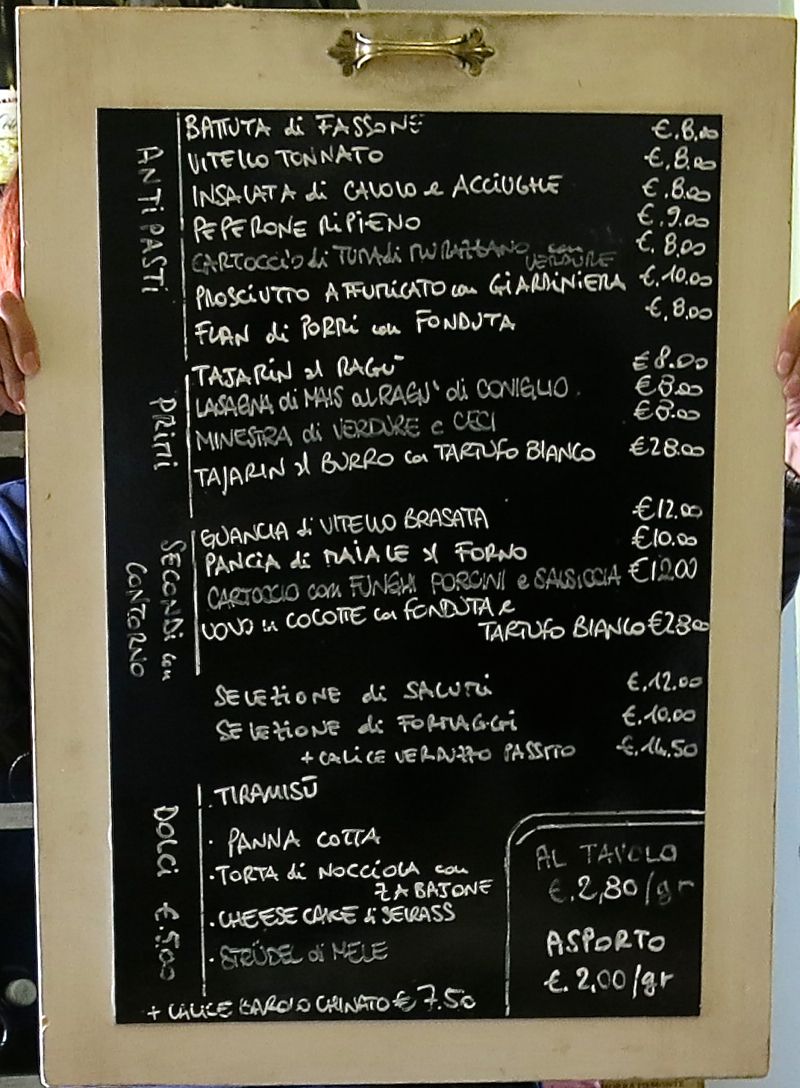 ANTIPASTI
BATTUTA di FASSONE €.8,00
VITELLO TONNATO €.8,00
INSALATA di CAVOLO e ACCIUGHE €.8,00
PEPERONE RIPIENO €.9,00
CARTOCCIO di TUMA di MURAZZANO con VERDURE €.8,00
PROSCIUTTO AFFUMICATO con GIARDINIERA €.10,00
FLAN di PORRI con FONDUTA €.8,00
PRIMI
TAJARIN al RAGÙ €8,00
LASAGNA di MAIS al RAGU' di CONIGLIO €8,00
MINESTRA di VERDURE e CECI €8,00
TAJARIN al BURRO con TARTUFO BIANCO €28,00
SECONDI con
CONTORNO
GUANCIA di VITELLO BRASATA €12,00
PANCIA di MAIALE al FORNO €10,00
CARTOCCIO con FUNGHI PORCINI e SALSICCIA €12,00
UOVO in COCOTTE con FONDUTA e
TARTUFO BIANCO €28,00
SELEZIONE di SALUMI €.12,00
SELEZIONE di FORMAGGI €.10,00
+ CALICE VERDUZZO PASSITO €.14,50
DOLCI €.5,00
· TIRAMISÙ
· PANNA COTTA
· TORTA di NOCCIOLA con
ZABAJONE
· CHEESE CAKE di SEIRASS
· STRÜDEL di MELE
+ CALICE BAROLO CHINATO € 7,50
AL TAVOLO
€.2,80/gr
ASPORTO
€.2,00/gr